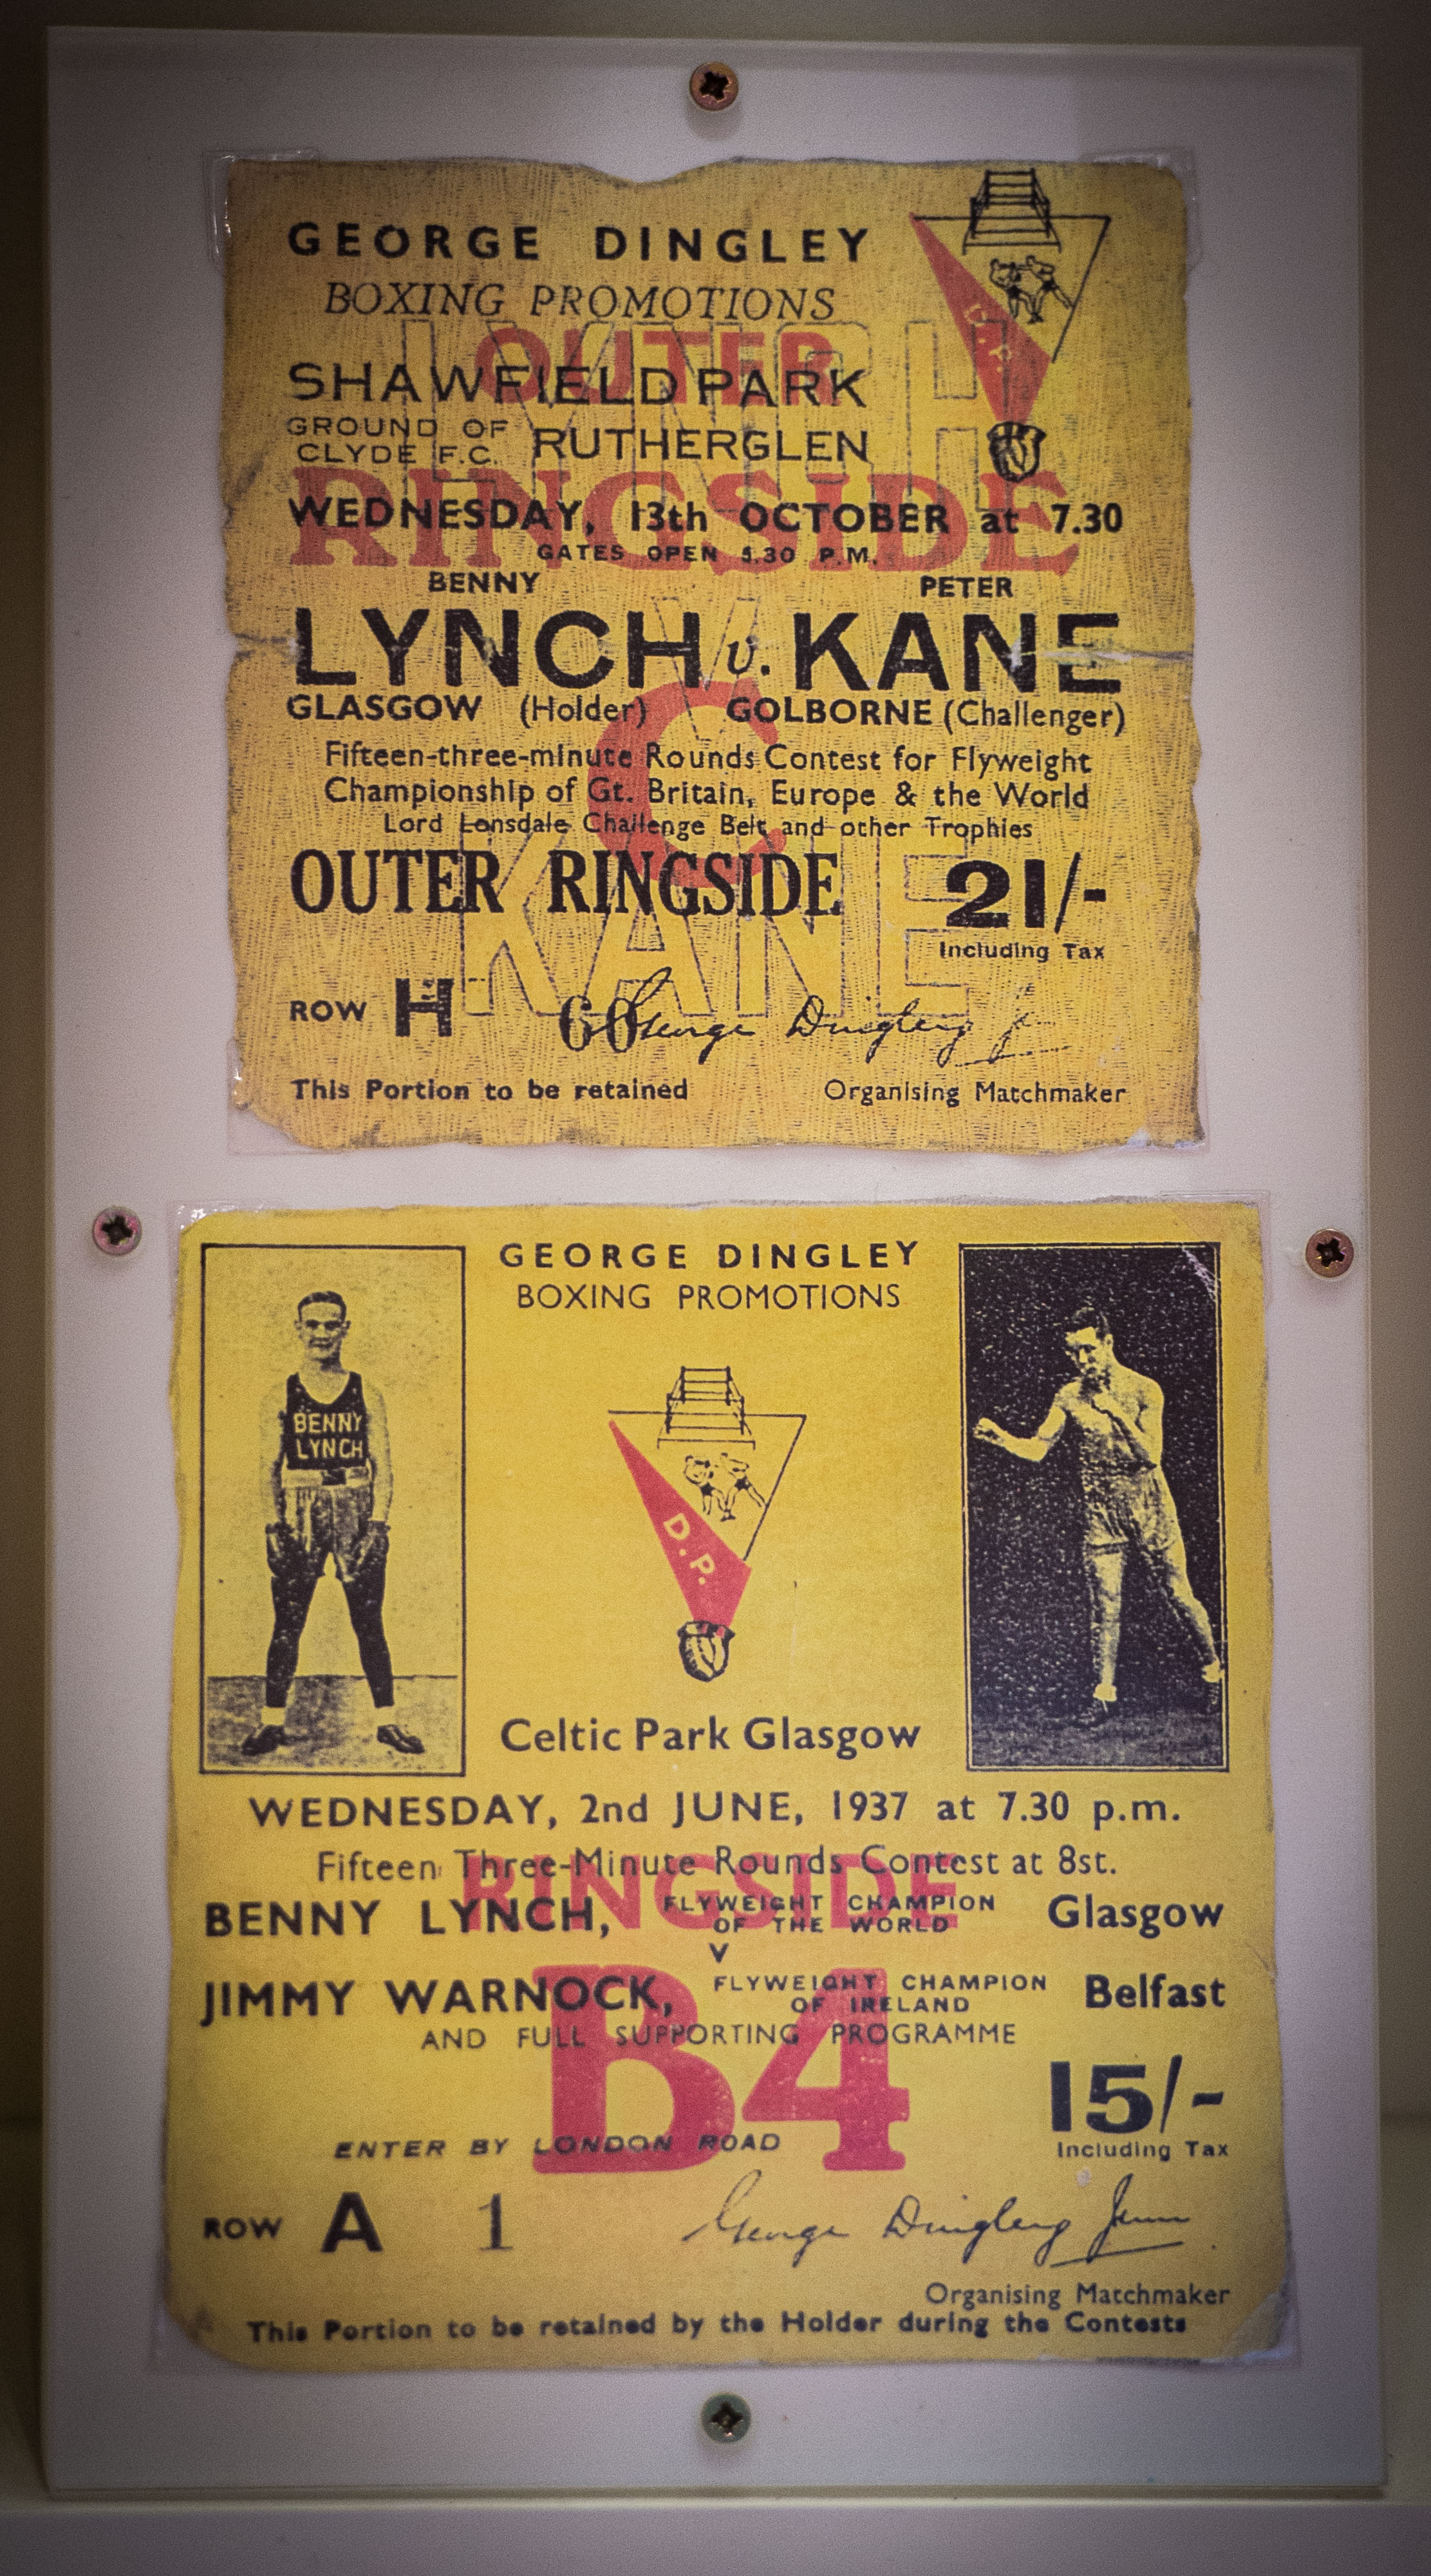 GEORGE DINGLEY
BOXING PROMOTIONS
D.P.
LYNCH
OUTER
SHAWFIELD PARK
GROUND OF
CLYDE F.C.
RUTHERGLEN
RINGSIDE
WEDNESDAY, 13th OCTOBER at 7.30
GATES OPEN 5.30 P.M.
BENNY PETER
LYNCH v. KANE
V
GLASGOW (Holder) GOLBORNE (Challenger)
C
Fifteen-three-minute Rounds Contest for Flyweight
Championship of Gt. Britain, Europe & the World
Lord Lonsdale Challenge Belt and other Trophies
KANE
OUTER RINGSIDE 21/-
Including Tax
ROW H 60 George Dingley Jr
This Portion to be retained Organising Matchmaker
GEORGE DINGLEY
BOXING PROMOTIONS
BENNY
LYNCH
D.P.
Celtic Park Glasgow
WEDNESDAY, 2nd JUNE, 1937 at 7.30 p.m.
Fifteen Three-Minute Rounds Contest at 8st.
RINGSIDE
BENNY LYNCH, FLYWEIGHT CHAMPION
OF THE WORLD Glasgow
V
JIMMY WARNOCK, FLYWEIGHT CHAMPION
OF IRELAND Belfast
AND FULL SUPPORTING PROGRAMME
B4
15/-
Including Tax
ENTER BY LONDON ROAD
ROW A 1 George Dingley Junr
Organising Matchmaker
This Portion to be retained by the Holder during the Contests